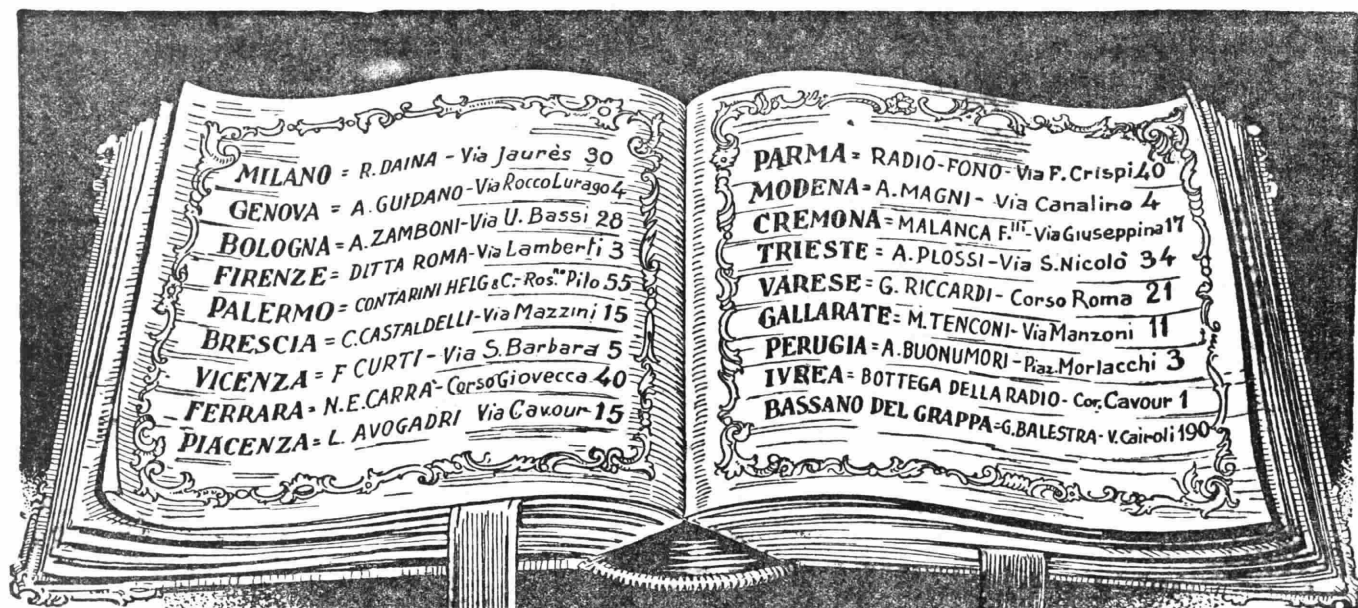 MILANO = R. DAINA - Via Jaurès 30
GENOVA = A. GUIDANO - Via Rocco Lurago 4
BOLOGNA = A. ZAMBONI - Via U. Bassi 28
FIRENZE = DITTA ROMA - Via Lamberti 3
PALERMO = CONTARINI HELG & C. - Ros.no Pilo 55
BRESCIA = C. CASTALDELLI - Via Mazzini 15
VICENZA = F CURTI - Via S. Barbara 5
FERRARA = N.E. CARRA' - Corso Giovecca 40
PIACENZA = L. AVOGADRI Via Cavour 15
PARMA = RADIO-FONO - Via F. Crispi 40
MODENA = A. MAGNI - Via Canalino 4
CREMONA = MALANCA F.lli - Via Giuseppina 17
TRIESTE = A. PLOSSI - Via S. Nicolò 34
VARESE = G. RICCARDI - Corso Roma 21
GALLARATE = M. TENCONI - Via Manzoni 11
PERUGIA = A. BUONUMORI - Piaz. Morlacchi 3
IVREA = BOTTEGA DELLA RADIO - Cor. Cavour 1
BASSANO DEL GRAPPA = G. BALESTRA - V. Cairoli 190